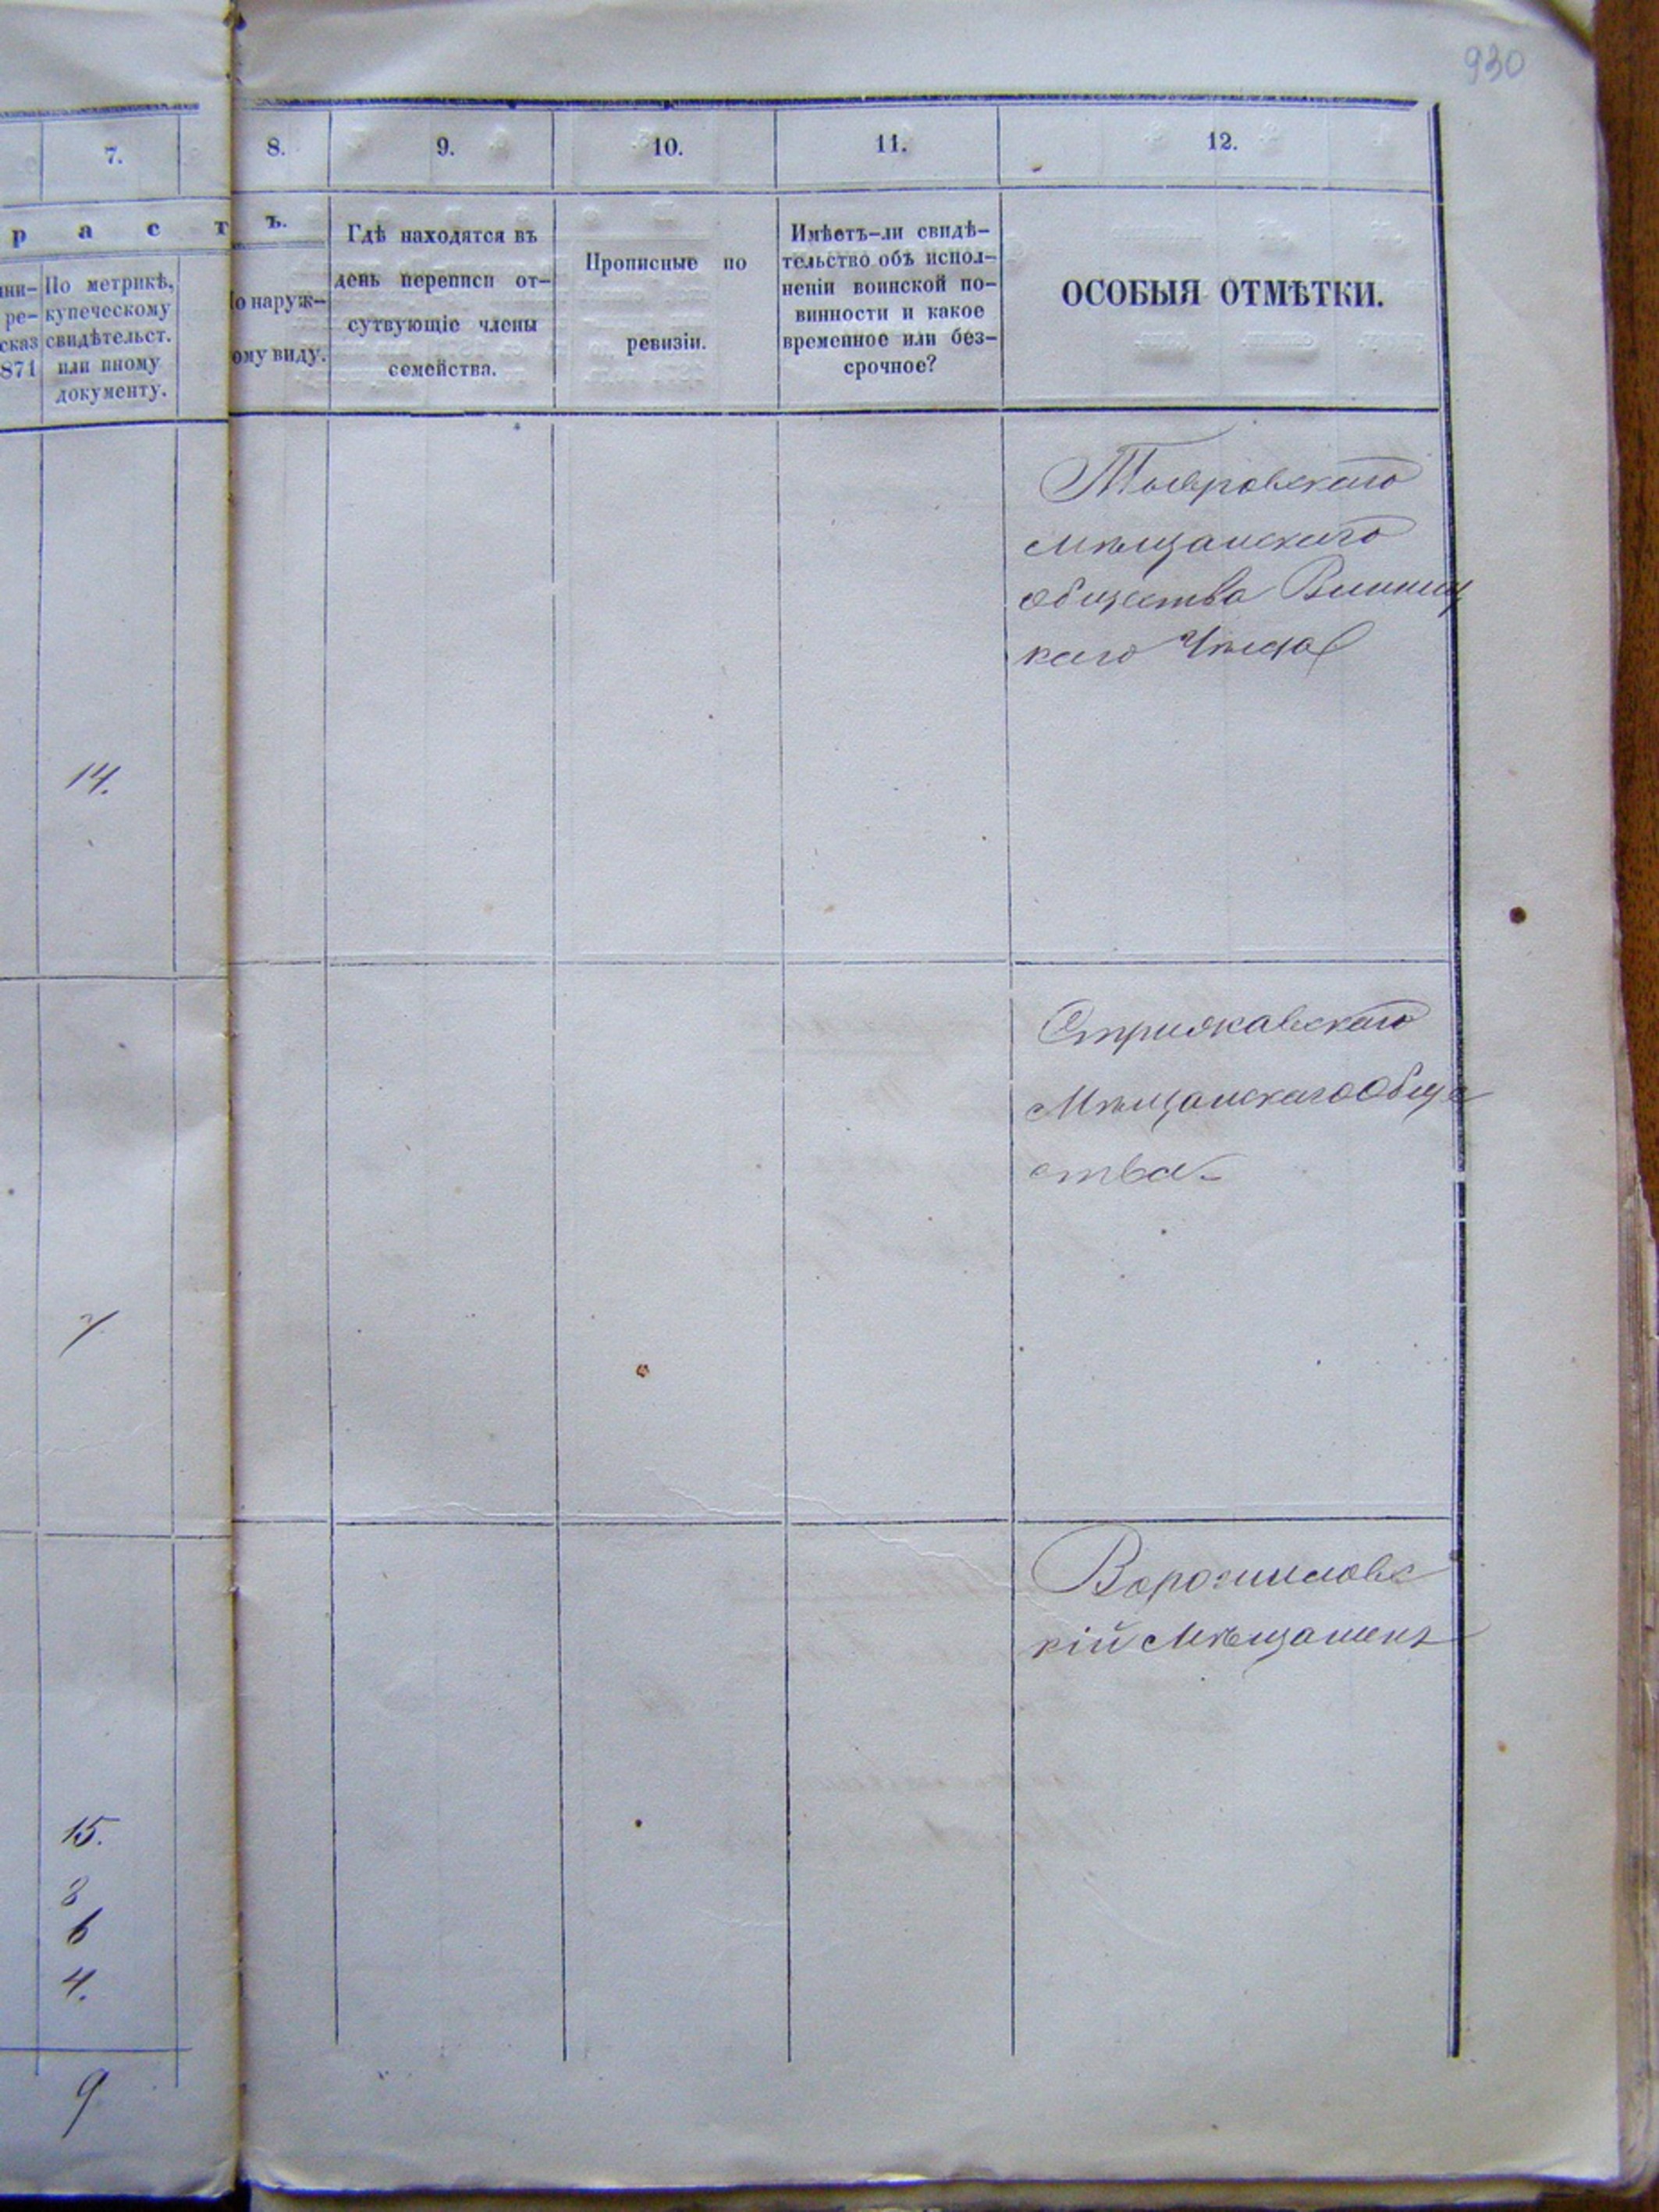 930
7.
8.
9.
10.
11.
12.
р а с т
ъ.
ини-
ре-
сказ
871
По метрикѣ,
купеческому
свидѣтельст.
или иному
документу.
о наруж-
ому виду.
Гдѣ находятся въ
день переписи от-
сутвующіе члены
семейства.
Прописные по
ревизіи.
Имѣетъ-ли свидѣ-
тельство объ испол-
неніи воинской по-
винности и какое
временное или без-
срочное?
ОСОБЫЯ ОТМѢТКИ.
Тывровскаго
мѣщанскаго
общества Винниц
каго Уѣзда
14.
Стрижавскаго
Мѣщанскаго Обще
ства
7
Ворошиловс
кій Мѣщанинъ
15.
8
6
4.
9